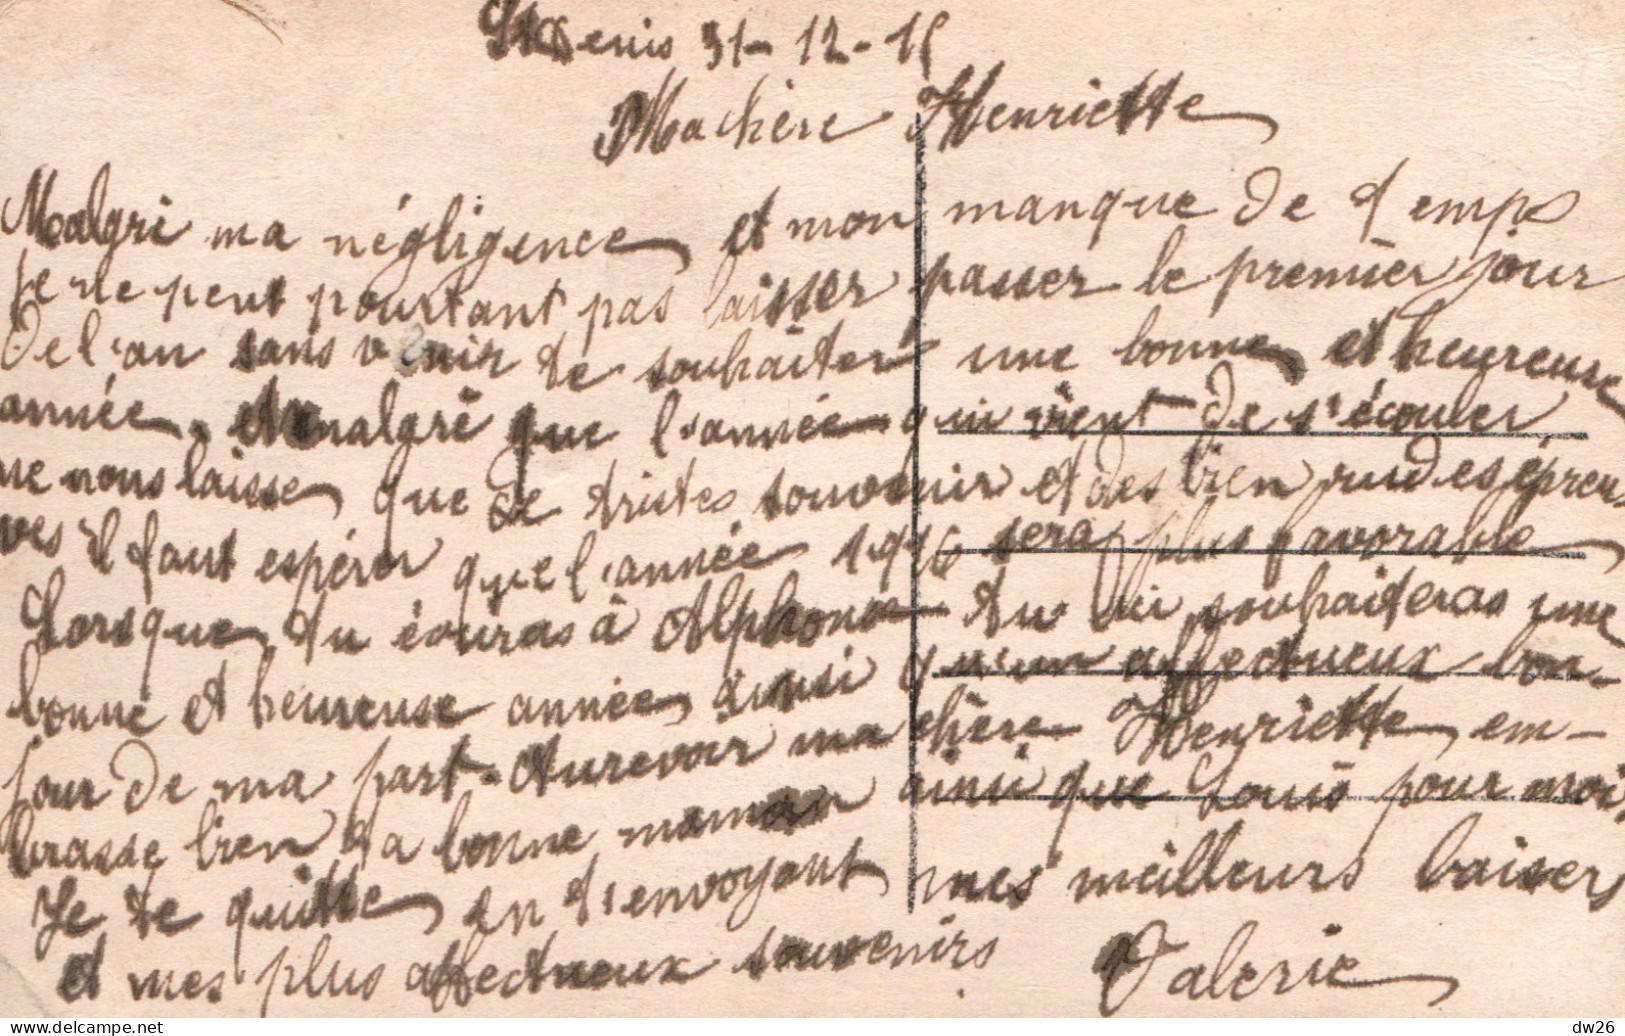 St Denis 31-12-15
Ma chère Henriette
Malgré ma négligence et mon manque de temps
je ne peut pourtant pas laisser passer le premier jour
de l'an sans venir te souhaiter une bonne et heureuse
année. et malgré que l'année qui vient de s'écouler
ne nous laisse que de tristes souvenir et des bien rudes épreu-
ves il faut espérer que l'année 1916 sera plus favorable
Lorsque tu écriras à Alphonse tu lui souhaiteras une
bonne et heureuse année ainsi qu'un affectueux bon-
jour de ma part. Aurevoir ma chère Henriette em-
brasse bien ta bonne maman ainsi que Louis pour moi,
Je te quitte en t'envoyant mes meilleurs baisers
et mes plus affectueux souvenirs Valerie
dw26